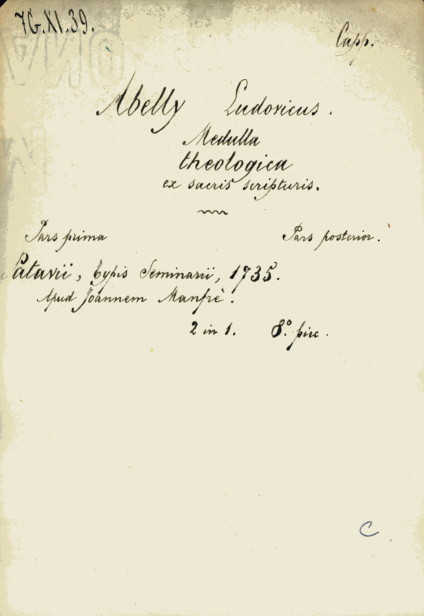 7G.XI.39.
Capp.
Abelly Ludovicus.
Medulla
theologica
ex sacris scripturis.
Pars prima Pars posterior.
Patavii, Typis Seminarii, 1735.
Apud Joannem Manfrè.
2 in 1. 8° picc.
C